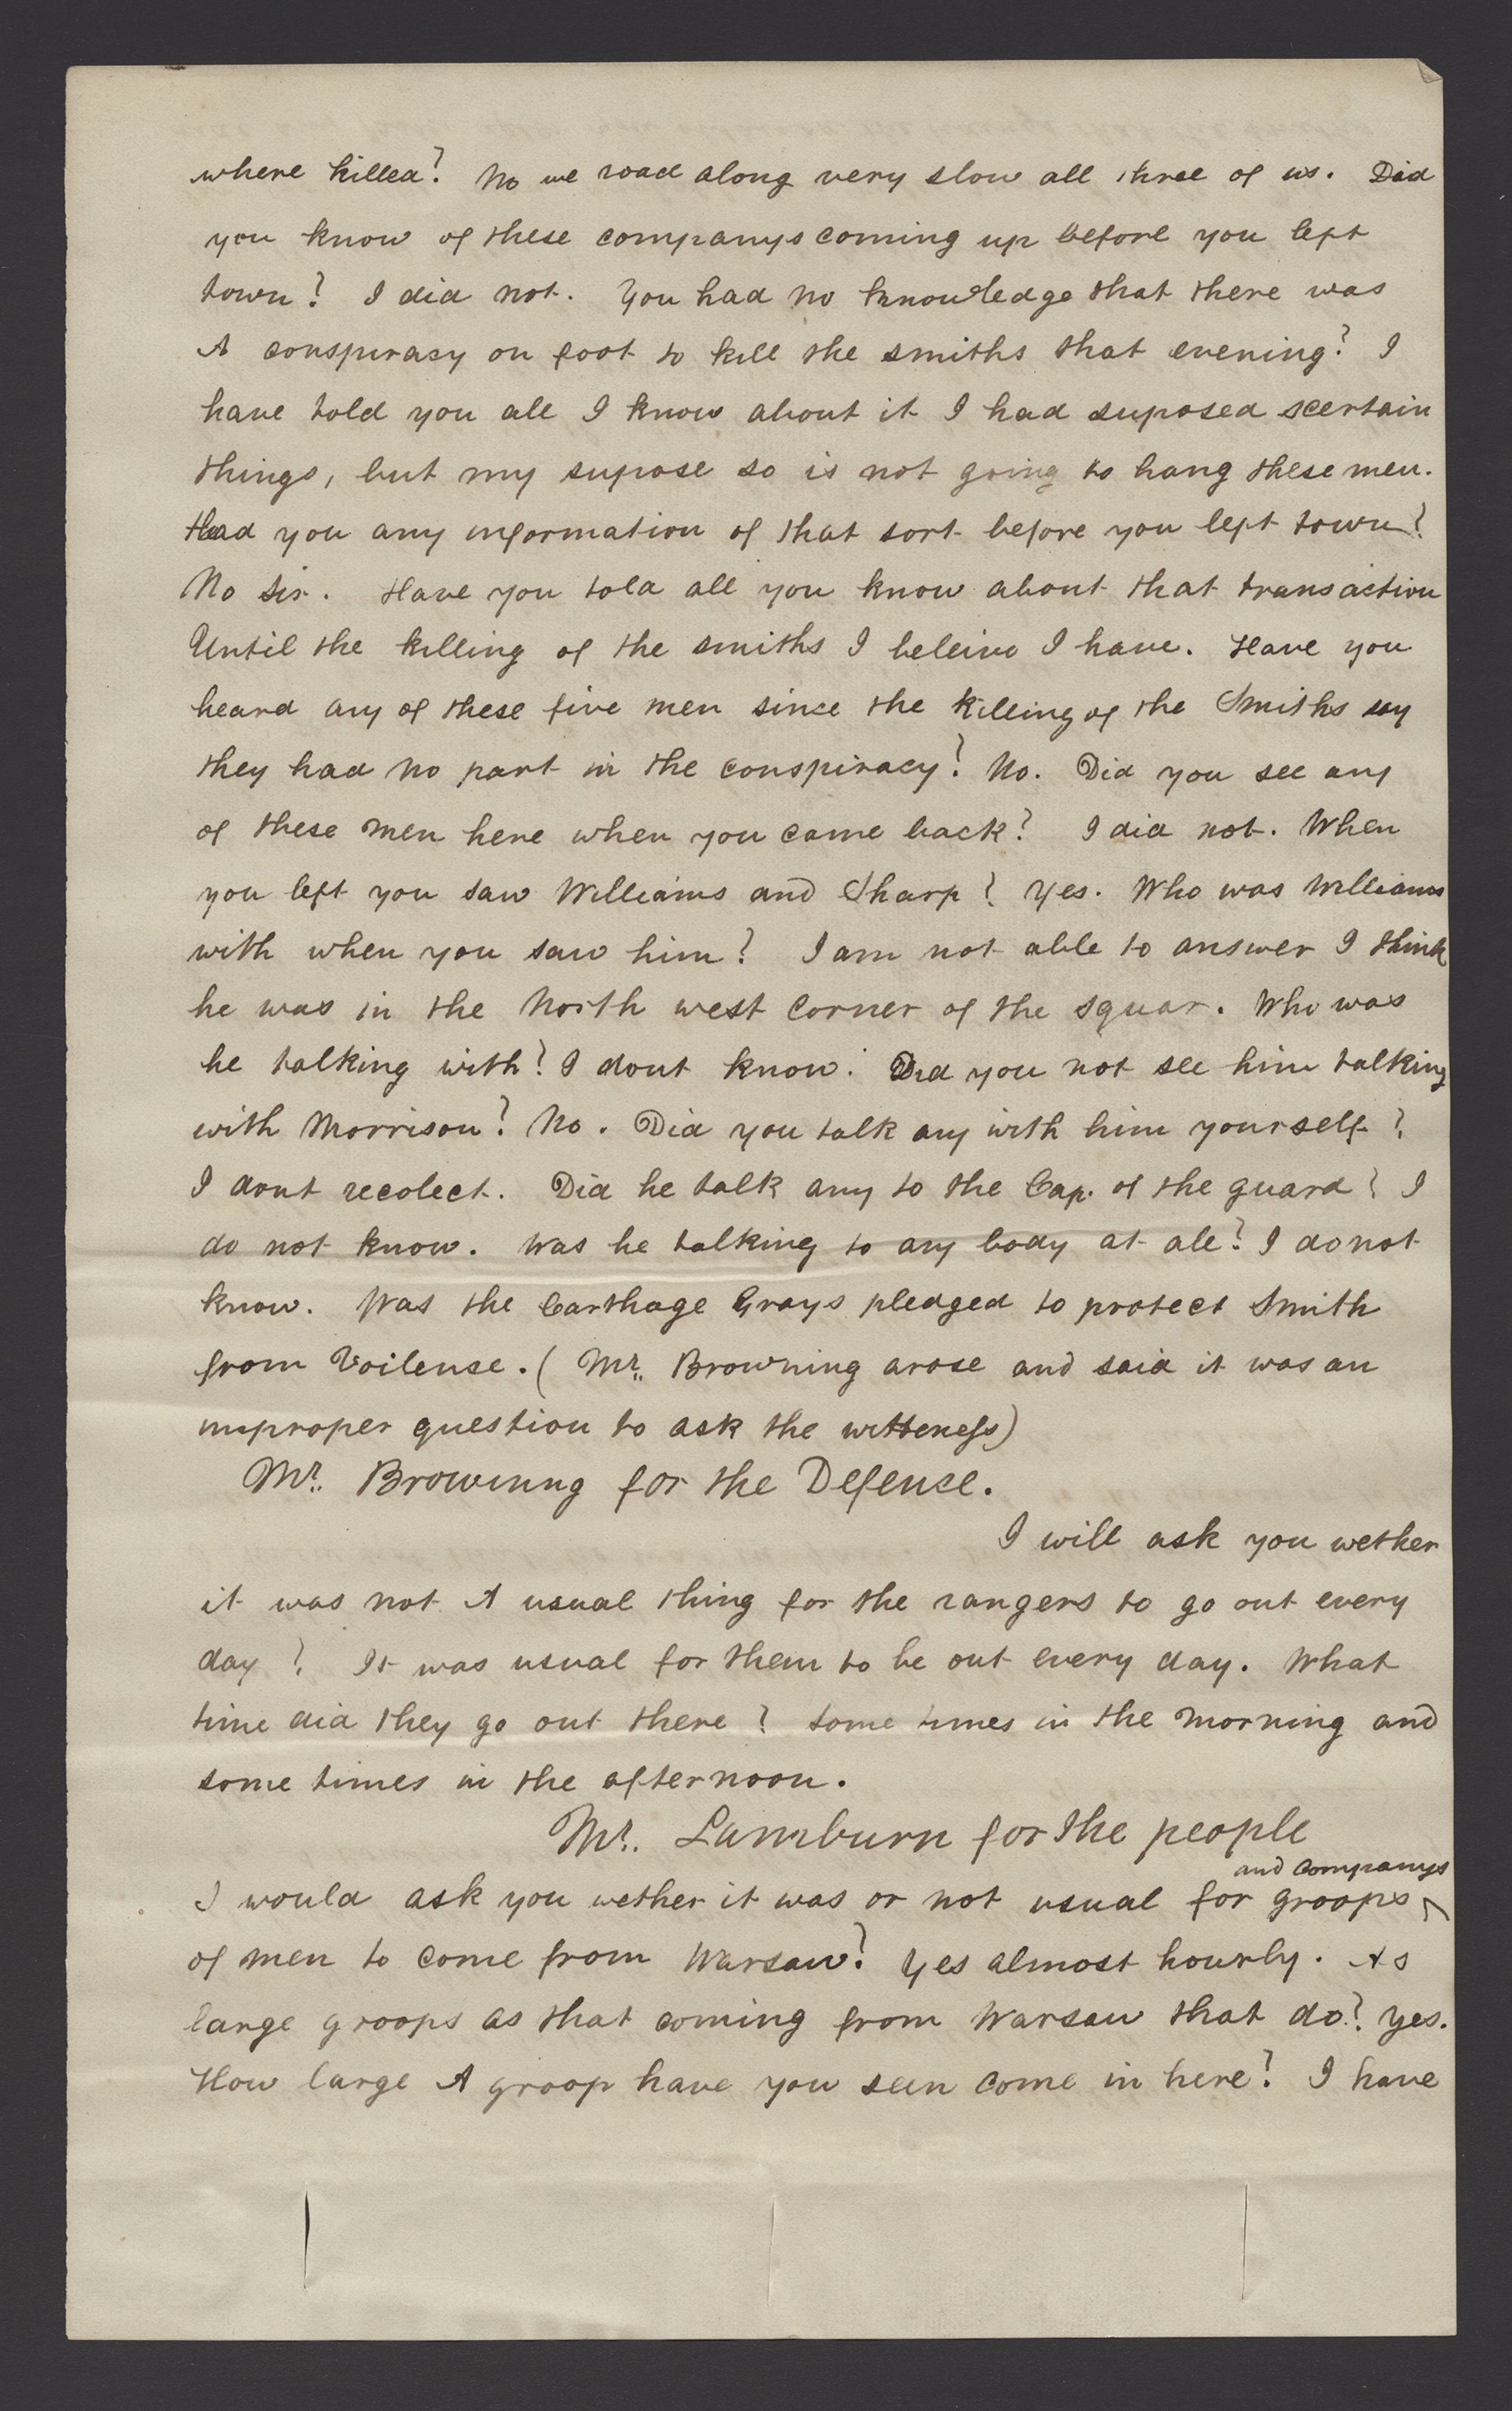 where killed? No we road along very slow all three of us. Did
you know of these companys coming up before you left
town? I did not. You had no knowledge that there was
A conspiracy on foot to kill the smiths that evening? I
have told you all I know about it I had suposed scertain
things, but my supose so is not going to hang these men.
Had you any information of that sort before you left town?
No sir. Have you told all you know about that transaction
Until the killing of the smiths I beleive I have. Have you
heard any of these five men since the killing of the Smiths say
they had no part in the conspiracy? No. Did you see any
of these men here when you came back? I did not. When
you left you saw Williams and Sharp? Yes. Who was Williams
with when you saw him? I am not able to answer I think
he was in the North west Corner of the squar. Who was
he talking with? I dont know. Did you not see him talking
with Morrison? No. Did you talk any with him yourself?
I dont recolect. Did he talk any to the Cap. of the guard? I
do not know. Was he talking to any body at all? I do not
know. Was the Carthage Grays pledged to protect Smith
from Voilense. (Mr. Browning arose and said it was an
improper question to ask the witteness)
Mr. Browning for the Defense.
I will ask you wether
it was not A usual thing for the rangers to go out every
day? It was usual for them to be out every day. What
time did they go out there? some times in the morning and
some times in the afternoon.
Mr. Lamburn for the people
and companys
I would ask you wether it was or not usual for groops
of men to come from Warsaw? Yes almost hourly. As
large groops as that coming from Warsaw that do? Yes.
How large A groop have you seen come in here? I have